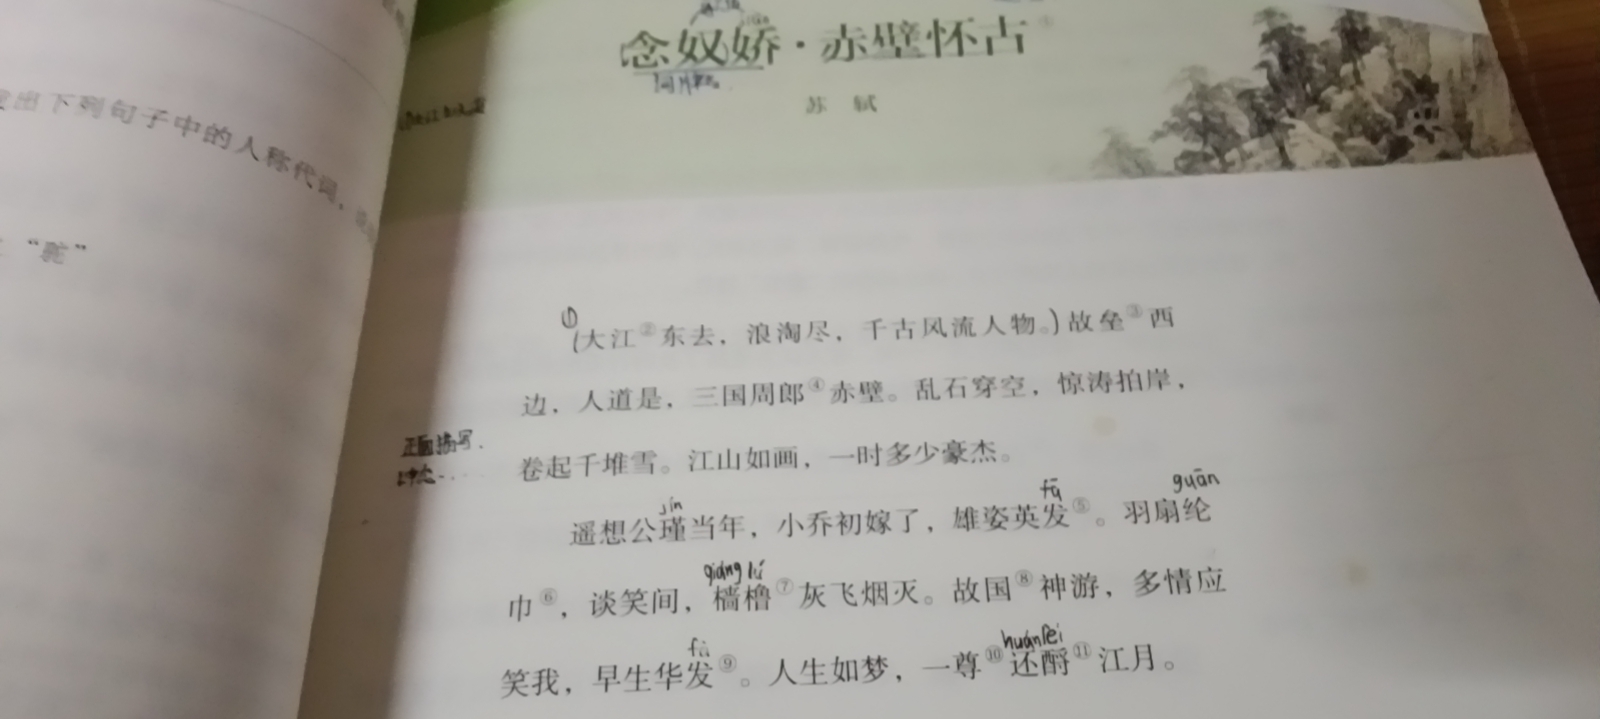 出下列句子中的人称代词，
“驼”
念奴娇·赤壁怀古①
词牌名
苏 轼
①
(大江②东去，浪淘尽，千古风流人物。)故垒③西
边，人道是，三国周郎④赤壁。乱石穿空，惊涛拍岸，
正面描写
卷起千堆雪。江山如画，一时多少豪杰。
jǐn fā guān
遥想公瑾当年，小乔初嫁了，雄姿英发⑤。羽扇纶
qiáng lǔ
巾⑥，谈笑间，樯橹⑦灰飞烟灭。故国⑧神游，多情应
fà huán lèi
笑我，早生华发⑨。人生如梦，一尊⑩还酹⑪江月。